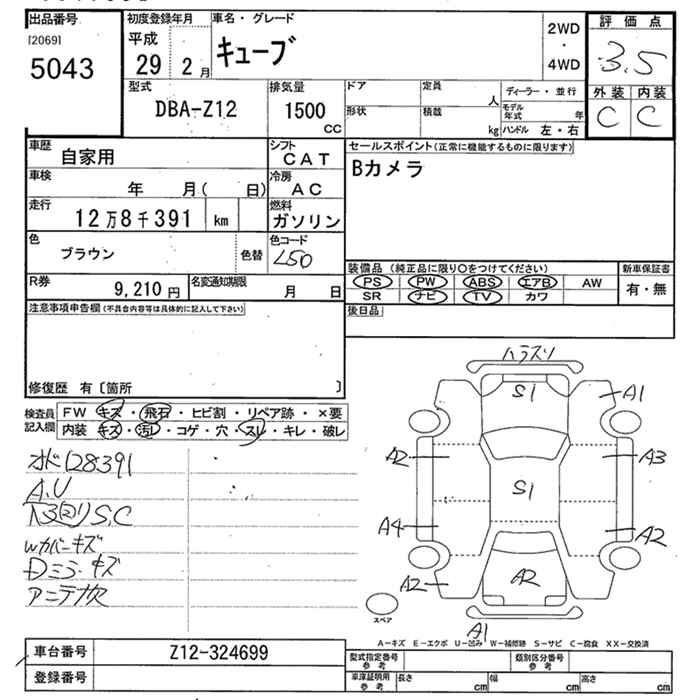 出品番号
[2069]
5043
初度登録年月
平成
29 2 月
車名・グレード
キューブ
2WD
・
4WD
評価点
3.5
外装 内装
C C
型式
DBA-Z12
排気量
1500
CC
ドア
定員
人
形状
積載
kg
ディーラー・並行
モデル年式
年
ハンドル 左・右
車歴
自家用
シフト
CAT
車検
年 月( 日)
冷房
AC
走行
12万8千391 km
燃料
ガソリン
色
ブラウン
色替
色コード
L50
R券
9,210 円
名変通知期限
月 日
セールスポイント(正常に機能するものに限ります)
Bカメラ
装備品 (純正品に限り○をつけてください)
PS PW ABS エアB AW
SR ナビ TV カワ
新車保証書
有・無
後日品
注意事項申告欄(不具合内容等は具体的に記入して下さい)
修復歴 有〔箇所 〕
検査員記入欄
FW キズ・飛石・ヒビ割・リペア跡・×要
内装 キズ・汚レ・コゲ・穴・スレ・キレ・破レ
オド128391
A.U
S.C
Wカバーキズ
Dミラーキズ
アンテナ欠
ハラスリ
S1
A1
A2
A3
S1
A4
A2
A2
A2
A1
スペア
A－キズ E－エクボ U－凹み W－補修跡 S－サビ C－腐食 XX－交換済
車台番号
Z12-324699
登録番号
型式指定番号
参考
類別区分番号
参考
車庫証明用
参考
長さ
cm
幅
cm
高さ
cm